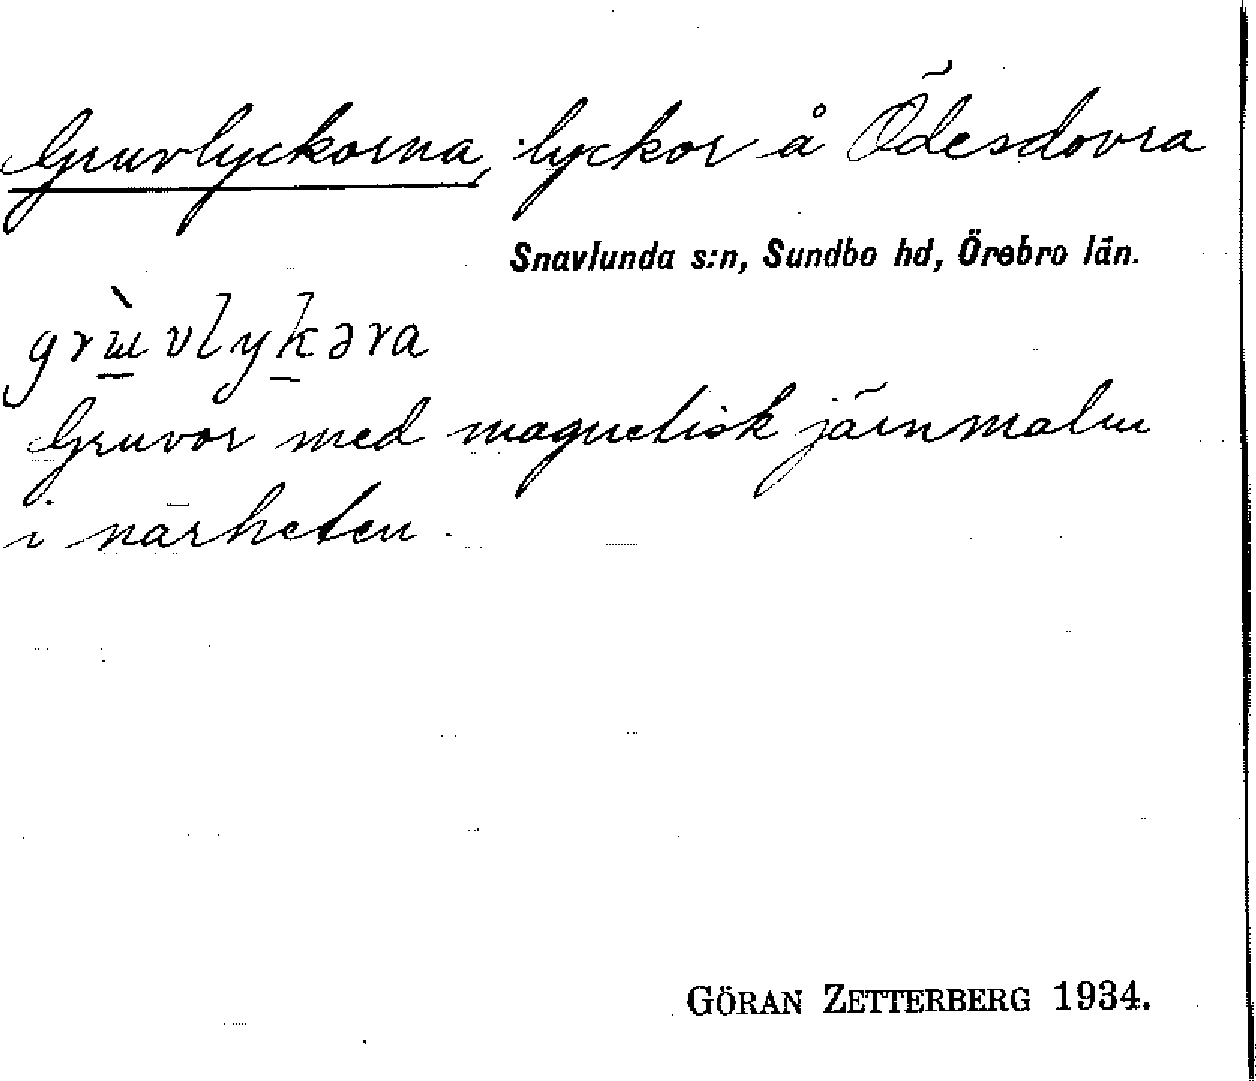 Gruvlyckorna, lyckor å Ödesdovra
Snavlunda s:n, Sundbo hd, Örebro län.
grɯ̀vlykəra
Gruvor med magnetisk järnmalm
i närheten.
GÖRAN ZETTERBERG 1934.